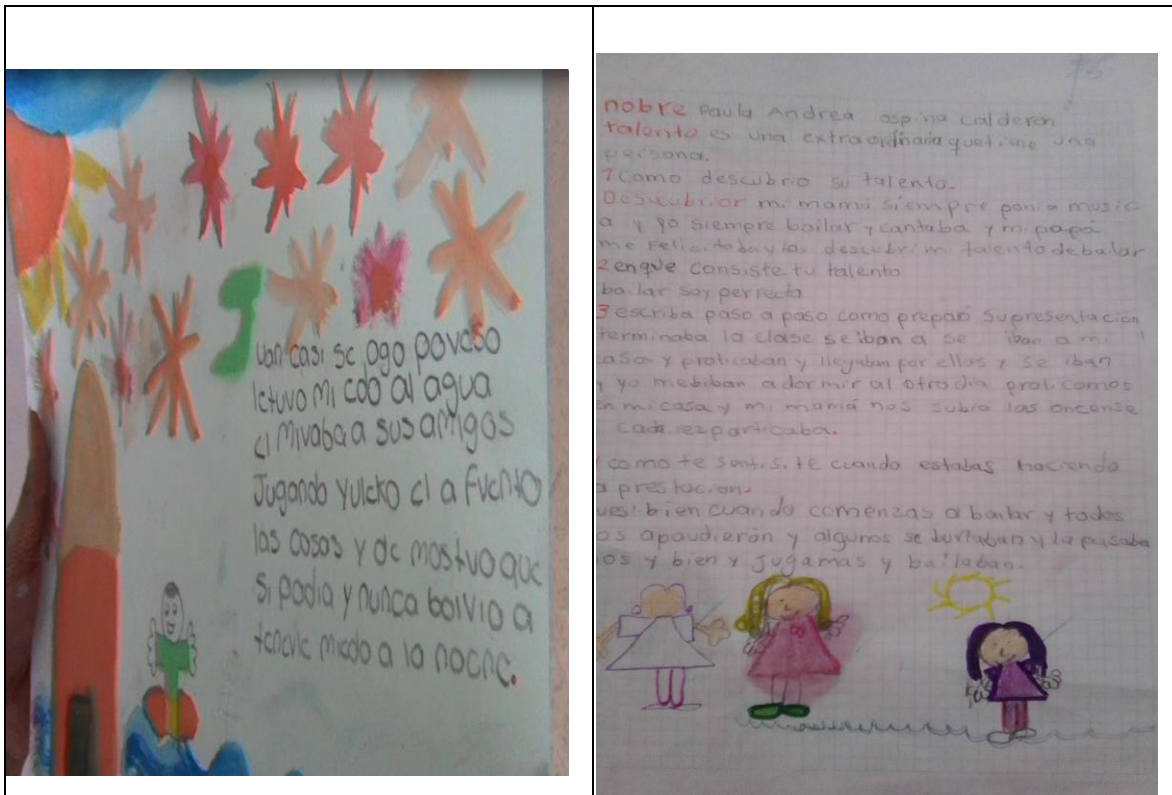 Juan casi se ogo poveso
letuvo mi edo al agua
el mivaba a sus amigos
Jugando y
las cosas y de mostvo que
si podia y nunca bolvio a
tenevle miedo a la noche.
nobre Paula Andrea ospina calderón
talento es una extraordinaria que tiene una
persona.
1 Como descubrio su talento.
Descubrior mi mamá siempre ponia music
a y yo siempre bailar y cantaba y mi papá
me Felicitaba y descubri mi talento de bailar
2 enque consiste tu talento
bailar soy perfecta
3 escriba paso a paso como preparó su presentación
terminaba la clase se iban a se iban a mi
casa y praticaban y llegaban por ellos y se iban
y yo mebiban a dormir al otro dia praticamos
en mi casa y mi mamá nos subio las oncense
cada
como te sentis, te cuando estabas haciendo
a prestacion.
ues: bien cuando comenzas a bailar y todos
os apaudierón y algunos se burlaban y la pasaba
os y bien y Jugamas y bailaban.